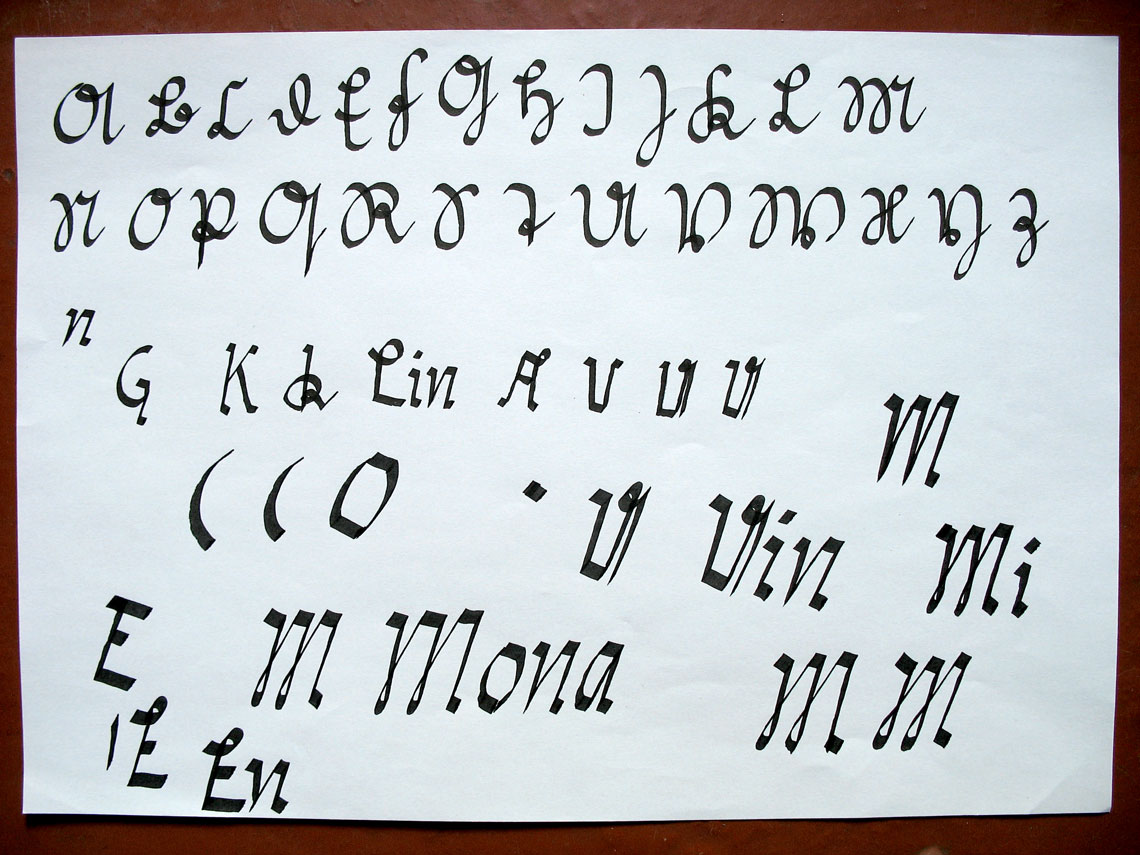 A B C D E F G H I J K L M
N O P Q R S T U V W X Y Z
n
G K k Lin A V U U
M
( ( O · V Vin
Mi
E M Mona M M
I E En